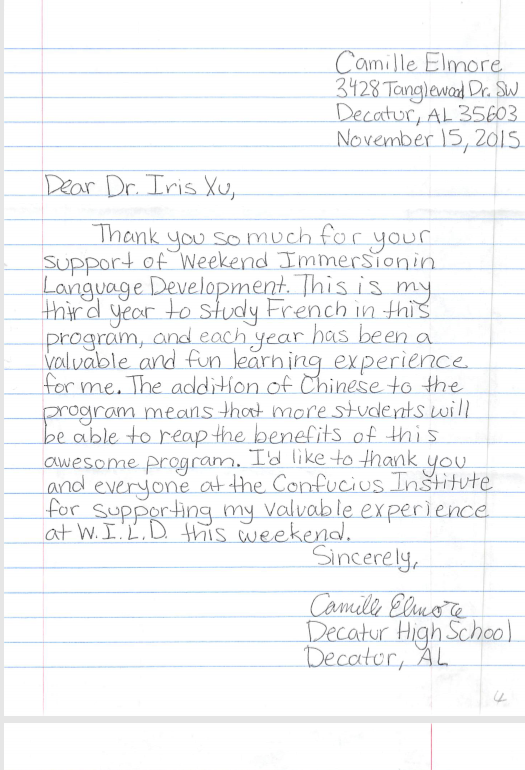 Camille Elmore
3428 Tanglewood Dr. SW
Decatur, AL 35603
November 15, 2015
Dear Dr. Iris Xu,
Thank you so much for your
support of Weekend Immersion in
Language Development. This is my
third year to study French in this
program, and each year has been a
valuable and fun learning experience
for me. The addition of Chinese to the
program means that more students will
be able to reap the benefits of this
awesome program. I'd like to thank you
and everyone at the Confucius Institute
for supporting my valuable experience
at W.I.L.D. this weekend.
Sincerely,
Camille Elmore
Decatur High School
Decatur, AL
4